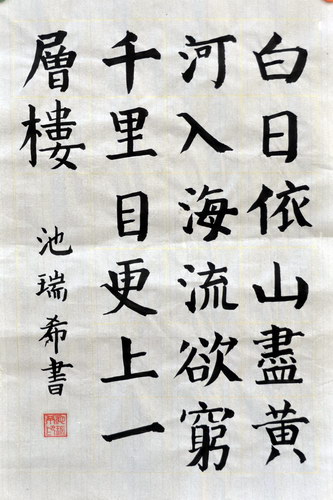 白日依山盡黄
河入海流欲窮
千里目更上一
層樓
池瑞希書